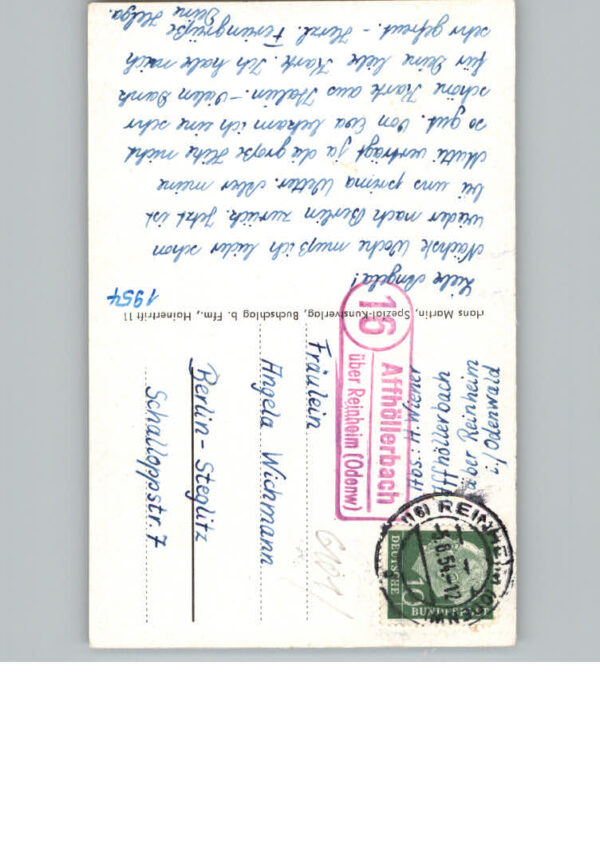 1954
Liebe Angela!
Nächste Woche muß ich leider schon
wieder nach Berlin zurück. Jetzt ist
bei uns prima Wetter. Aber meine
Mutti verträgt ja die große Hitze nicht
so gut. Von Eva bekam ich eine sehr
schöne Karte aus Italien. - Vielen Dank
für Deine liebe Karte. Ich habe mich
sehr gefreut. - Herzl. Feriengrüße
Deine Helga.
Hans Martin, Spezial-Kunstverlag, Buchschlag b. Ffm., Hainertrift 11
16
Affhöllerbach
über Reinheim (Odenw)
Abs.: H. Wiener
Affhöllerbach
über Reinheim
i/Odenwald
(16) REINHEIM (ODENW)
5.8.54.-12
DEUTSCHE
BUNDESPOST
10
Fräulein
Angela Wichmann
Berlin-Steglitz
Schalloppstr. 7